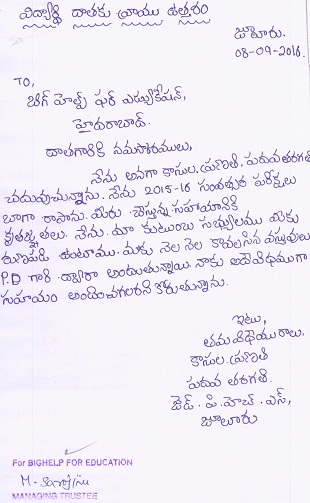 విద్యార్థి దాతకు వ్రాయు ఉత్తరం
జూలూరు.
08-09-2016.
TO,
బిగ్ హెల్ప్ ఫర్ ఎడ్యుకేషన్,
హైదరాబాద్.
దాతగారికి నమస్కారములు,
నేను అనగా కాసుల. ప్రణతి, పదువతరగతి
చదువుచున్నాను. నేను 2015-16 సంవత్సర పరీక్షలు
బాగా రాసాను. మీరు చేస్తున్న సహాయానికి
కృతజ్ఞతలు. నేను, మా కుటుంబ సభ్యులము మీకు
రుణపడి ఉంటాము. మాకు నెల నెల కావలసిన వస్తువులు
P.D గారి ద్వారా అందుతున్నాయి. నాకు అదేవిధముగా
సహాయం అందించగలరని కోరుతున్నాను.
ఇట్లు,
తమ విధేయురాలు.
కాసుల. ప్రణతి
పదువ తరగతి.
జెడ్. పి. హెచ్. ఎస్,
జూలూరు
For BIGHELP FOR EDUCATION
M. Sarojinu
MANAGING TRUSTEE